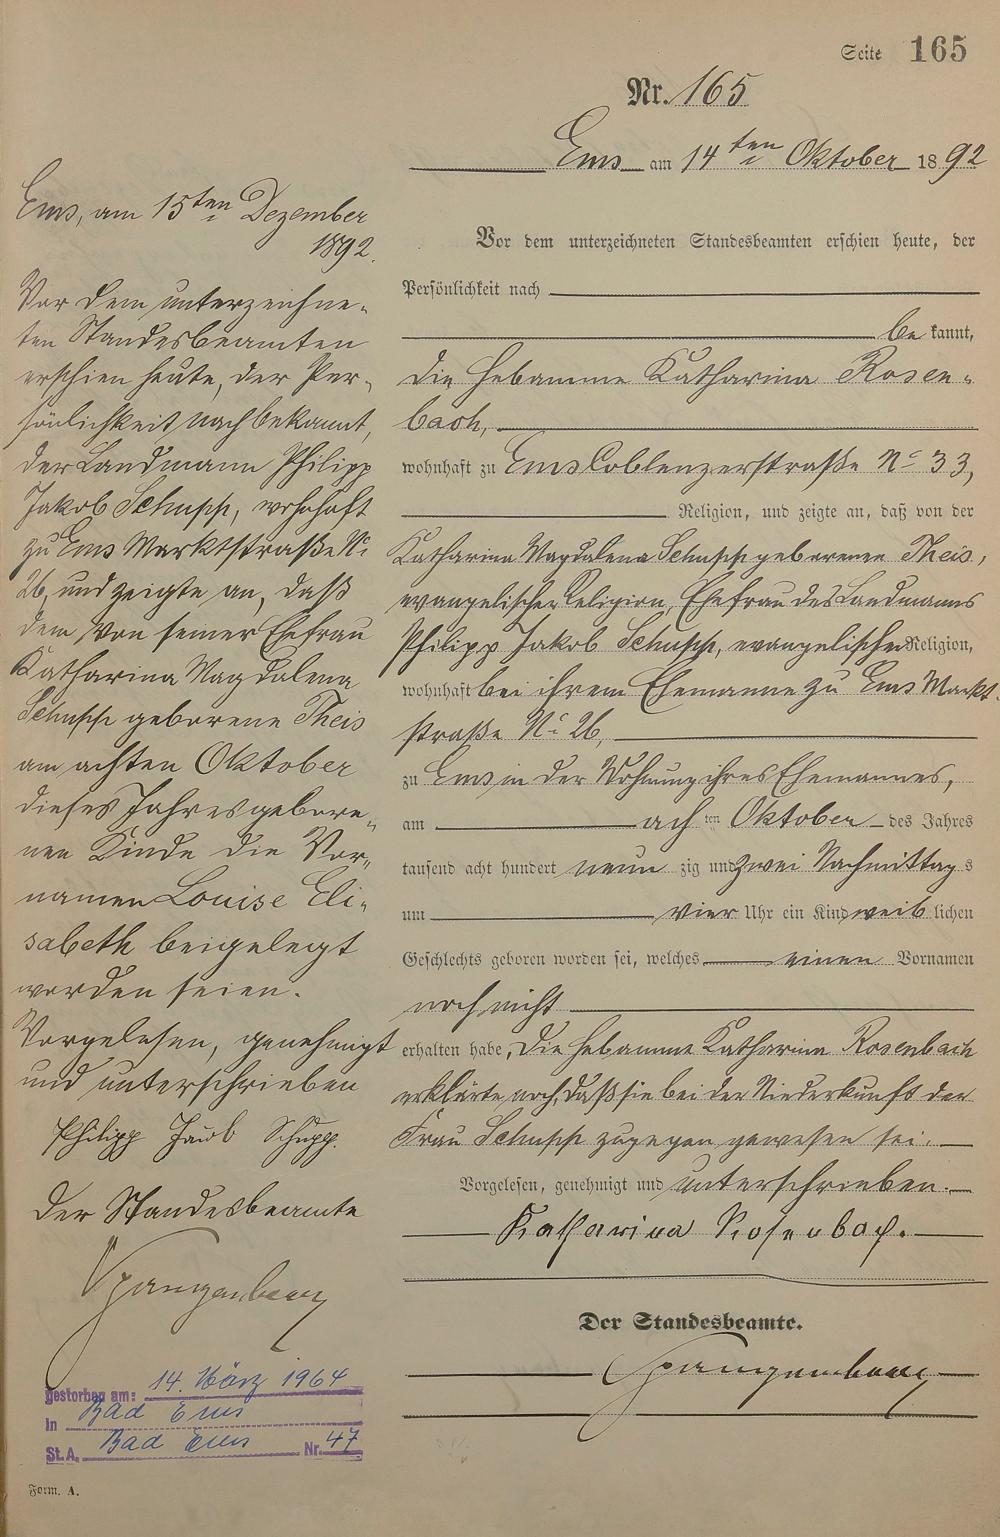 Seite 165
Nr. 165
Ems am 14ten Oktober 1892
Vor dem unterzeichneten Standesbeamten erschien heute, der
Persönlichkeit nach
be kannt,
die Hebamme Katharina Rosen-
bach,
wohnhaft zu Ems Coblenzerstraße No 33,
Religion, und zeigte an, daß von der
Katharina Magdalena Schupp geborenen Theis,
evangelischer Religion, Ehefrau des Landmanns
Philipp Jakob Schupp, evangelischer Religion,
wohnhaft bei ihrem Ehemanne zu Ems Markt-
straße No 26,
zu Ems in der Wohnung ihres Ehemannes,
am achten Oktober des Jahres
tausend acht hundert neun zig und zwei Nachmittags
um vier Uhr ein Kind weiblichen
Geschlechts geboren worden sei, welches einen Vornamen
noch nicht
erhalten habe, Die Hebamme Katharina Rosenbach
erklärte noch, daß sie bei der Niederkunft der
Frau Schupp zugegen gewesen sei.
Vorgelesen, genehmigt und unterschrieben.
Katharina Rosenbach.
Der Standesbeamte.
Spangenberg
Ems, am 15ten Dezember
1892.
Vor dem unterzeichne-
ten Standesbeamten
erschien heute, der Per-
sönlichkeit nach bekannt,
der Landmann Philipp
Jakob Schupp, wohnhaft
zu Ems Marktstraße No
26, und zeigte an, daß
dem von seiner Ehefrau
Katharina Magdalena
Schupp geborene Theis
am achten Oktober
dieses Jahres gebore-
nen Kinde die Vor-
namen Louise Eli-
sabeth beigelegt
worden seien.
Vorgelesen, genehmigt
und unterschrieben
Philipp Jacob Schupp.
Der Standesbeamte
Spangenberg
gestorben am: 14. März 1964
in Bad Ems
St.A. Bad Ems Nr. 47
Form. A.